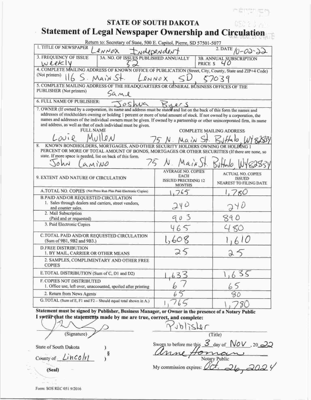 STATE OF SOUTH DAKOTA
Statement of Legal Newspaper Ownership and Circulation
Return to: Secretary of State, 500 E. Capitol, Pierre, SD 57501-5077
1. TITLE OF NEWSPAPER Lennox Independent 2. DATE 10-02-22
3. FREQUENCY OF ISSUE Weekly 3A. NO. OF ISSUES PUBLISHED ANNUALLY 52 3B. ANNUAL SUBSCRIPTION PRICE $ 40
4. COMPLETE MAILING ADDRESS OF KNOWN OFFICE OF PUBLICATION (Street, City, County, State and ZIP+4 Code)
(Not printers) 116 S. Main St Lennox SD 57039
5. COMPLETE MAILING ADDRESS OF THE HEADQUARTERS OR GENERAL BUSINESS OFFICES OF THE
PUBLISHER (Not printers) Same
6. FULL NAME OF PUBLISHER:
Joshua Byers
7. OWNER (If owned by a corporation, its name and address must be stated and
addresses of stockholders owning or holding 1 percent or more of total amount of stock. If not owned by a corporation, the
names and addresses of the individual owners must be given. If owned by a partnership or other unincorporated firm, its name
and address, as well as that of each individual must be given.
FULL NAME COMPLETE MAILING ADDRESS
Mullen 75 N. Main St Buffalo WY 82834
8. KNOWN BONDHOLDERS, MORTGAGES, AND OTHER SECURITY HOLDERS OWNING OR HOLDING 1
PERCENT OR MORE OF TOTAL AMOUNT OF BONDS, MORTGAGES OR OTHER SECURITIES (If there are none, so
state. If more space is needed, list on back of this form.
John 75 N. Main St Buffalo WY 82834
9. EXTENT AND NATURE OF CIRCULATION
AVERAGE NO. COPIES EACH ISSUED PRECEDING 12 MONTHS
ACTUAL NO. COPIES ISSUED NEAREST TO FILING DATE
A. TOTAL NO. COPIES 1,765 1,780
B. PAID AND/OR REQUESTED CIRCULATION
1. Sales through dealers and carriers, street vendors, and counter sales 240 240
2. Mail Subscription (Paid and or requested) 903 890
3. Paid Electronic Copies 465 480
C. TOTAL PAID AND/OR REQUESTED CIRCULATION (Sum of 9B1, 9B2 and 9B3.) 1,608 1,610
D. FREE DISTRIBUTION
1. BY MAIL, CARRIER OR OTHER MEANS 25 25
2. SAMPLES, COMPLIMENTARY AND OTHER FREE COPIES
E. TOTAL DISTRIBUTION (Sum of C, D1 and D2) 1,633 1,635
F. COPIES NOT DISTRIBUTED
1. Office use, left over, unaccounted, spoiled after printing 67 65
2. Return from News Agents 65 80
G. TOTAL (Sum of E, F1 and F2 - Should equal total shown in A.) 1,765 1,780
Statement must be signed by Publisher, Business Manager, or Owner in the presence of a Notary Public
I swear that the statements made by me are true, correct, and complete:
Publisher
(Signature) (Title)
State of South Dakota )
Sworn to before me this 3 day of Nov, 2022
County of Lincoln )
Notary Public
(Seal) My commission expires: Oct 26, 2024